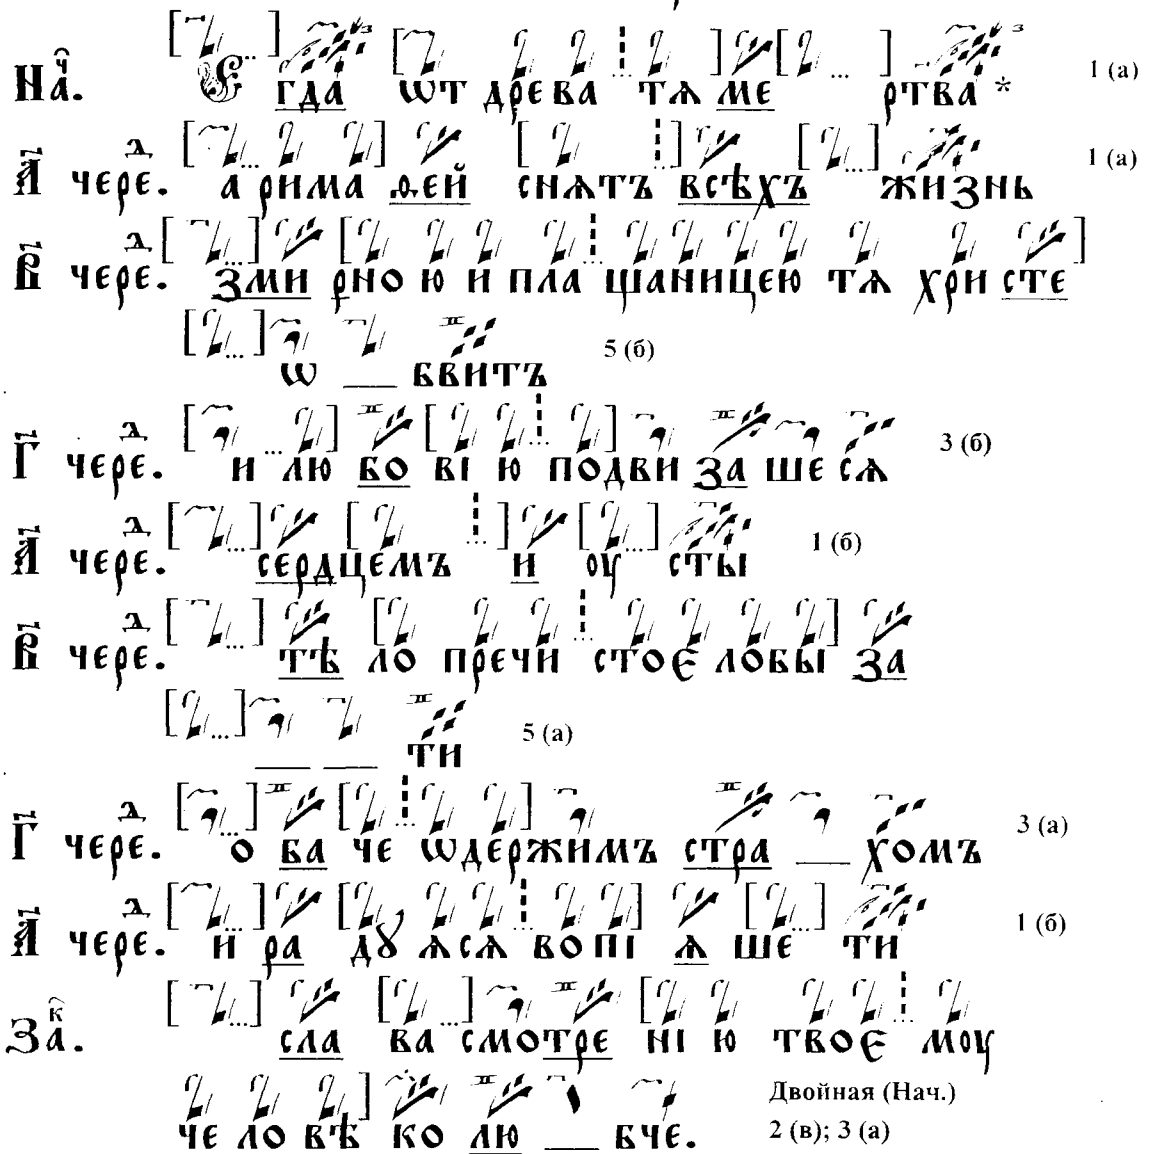 На҃ч. Є гда ѡт древа тѧ ме ртва * 1 (а)
А҃ чере.д а рима ѳей снѧтъ всѣхъ жизнь 1 (а)
В҃ чере.д зми рно ю и пла щаницею тѧ хри сте
ѡ __ бвитъ 5 (б)
Г҃ чере.д и лю бо ві ю подви за ше сѧ 3 (б)
А҃ чере.д сердцемъ и оу сты 1 (б)
В҃ чере.д тѣ ло пречи стоє лобы за
__ __ ти 5 (а)
Г҃ чере.д о ба че ѡдержимъ стра __ хомъ 3 (а)
А҃ чере.д и ра дꙋ ѧсѧ вопі ѧ ше ти 1 (б)
За к. сла ва смотре ні ю твоє моу
че ло вѣ ко лю __ бче. Двойная (Нач.)
2 (в); 3 (а)